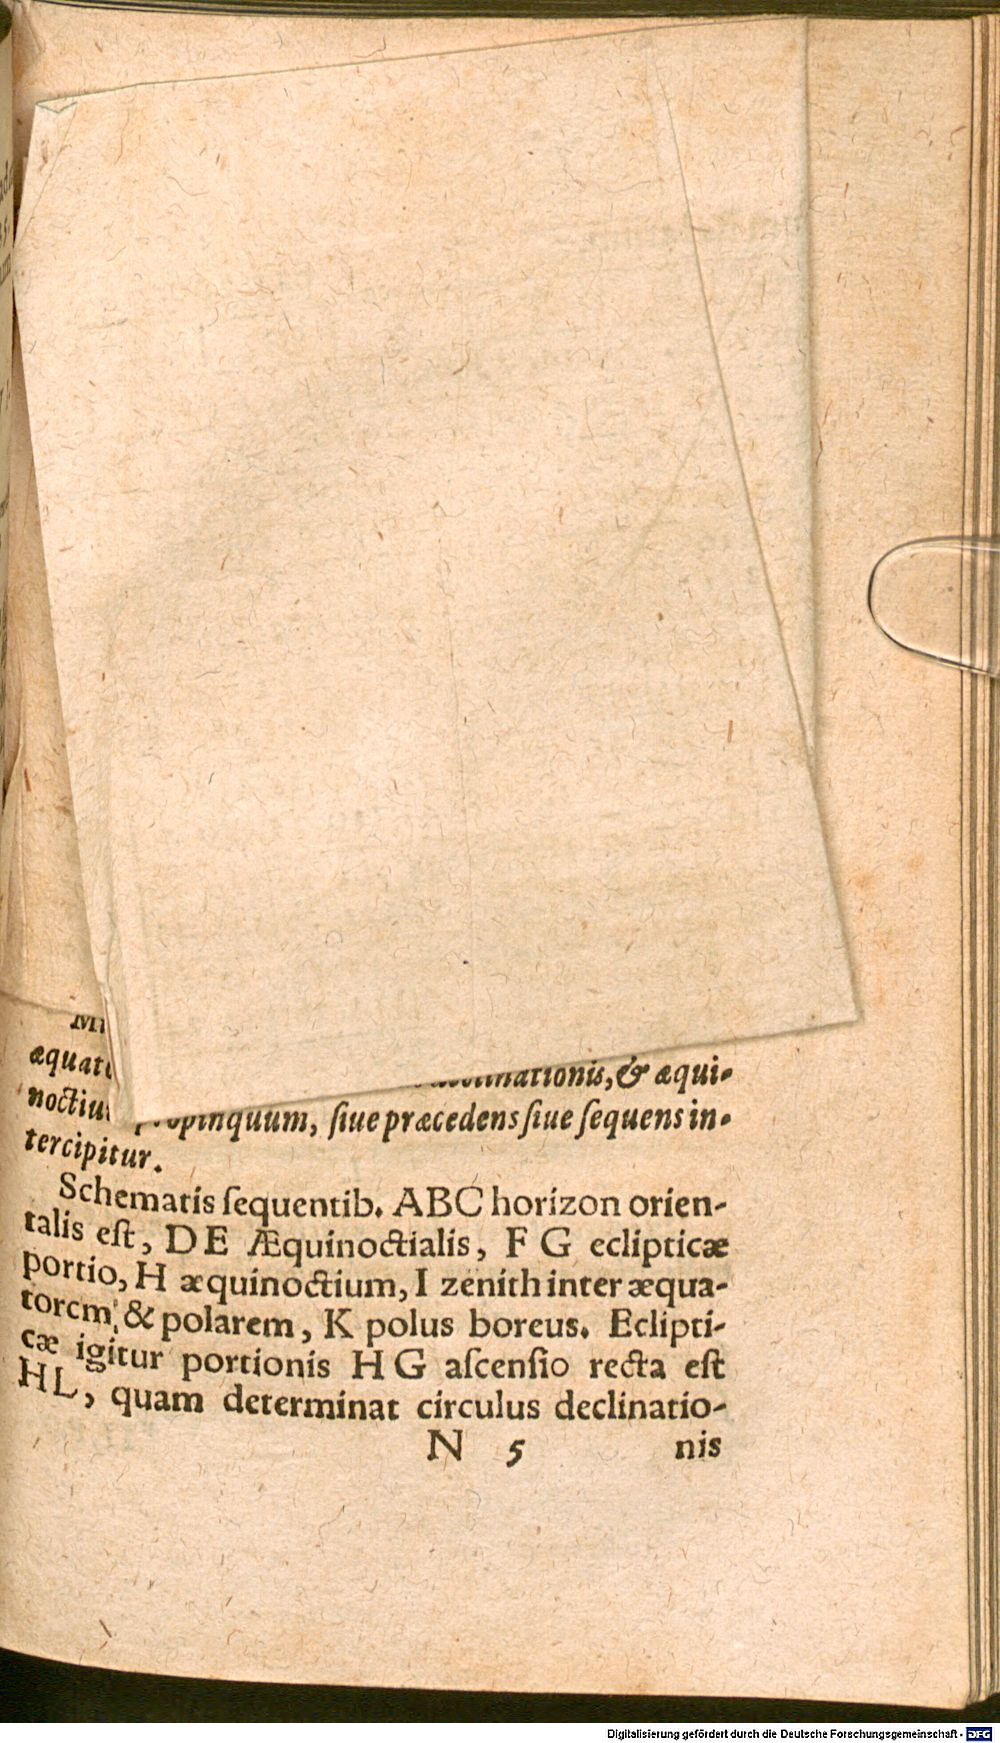 declinationis, & æqui-
propinquum, ſiue præcedens ſiue ſequens in-
tercipitur.
Schematis ſequentib. ABC horizon orien-
talis eſt, DE Æquinoctialis, F G eclipticæ
portio, H æquinoctium, I zenith inter æqua-
torem, & polarem, K polus boreus. Eclipti-
cæ igitur portionis H G aſcenſio recta eſt
HL, quam determinat circulus declinatio-
N 5 nis
Digitalisierung gefördert durch die Deutsche Forschungsgemeinschaft - DFG